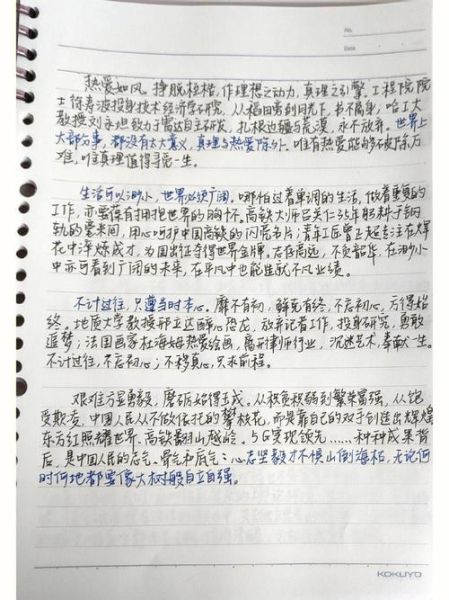 No.
Date
热爱如风，挣脱桎梏，作理想之动力，真理之引擎。工程院院
士徐寿波投身技术经济学研究，从稻田写到月光下，书不离身，哈工大
教授刘永坦致力于雷达自主研发，扎根边疆与荒漠，永不放弃。世界上
大部分事，都没有太大意义，真理与热爱除外。唯有热爱能够破除万
难，唯真理值得寻觅一生。
生活可以渺小，世界必须广阔。哪怕过着单调的生活，做着重复的
工作，亦要葆有拥抱世界的胸怀。高铁大师吕关仁35年躬耕于钢
轨的毫米间，用心呵护中国高铁的闪亮名片；青年工匠曾正超专注在焊
花中淬炼成才，为国出征夺得世界金牌。志存高远，不负韶华，在渺小
中亦可看到广阔的未来，在平凡中也能造就不凡业绩。
不计过往，只遵当时本心。靡不有初，鲜克有终，不忘初心，方得始
终。地质大学教授邢立达醉心恐龙，放弃记者工作，投身研究，勇敢
追梦；法国画家杜海姆热爱绘画，离开律师行业，沉迷艺术，奉献一生。
不计过往，不忘初心；不移真心，只求前程。
艰难方显勇毅，磨砺始得玉成。从积贫积弱到繁荣富强，从饱
受欺凌，中国人民从不做依托的攀枝花，而是靠自己的双手创造出辉煌
东方红照耀世界，高铁翻山越岭，5G实现领先……种种成果背
后，是中国人民的志气、骨气和底气：心志坚毅才不惧山倒海枯，无论何
时何地都要像大树般自立自强。
KOKUYO